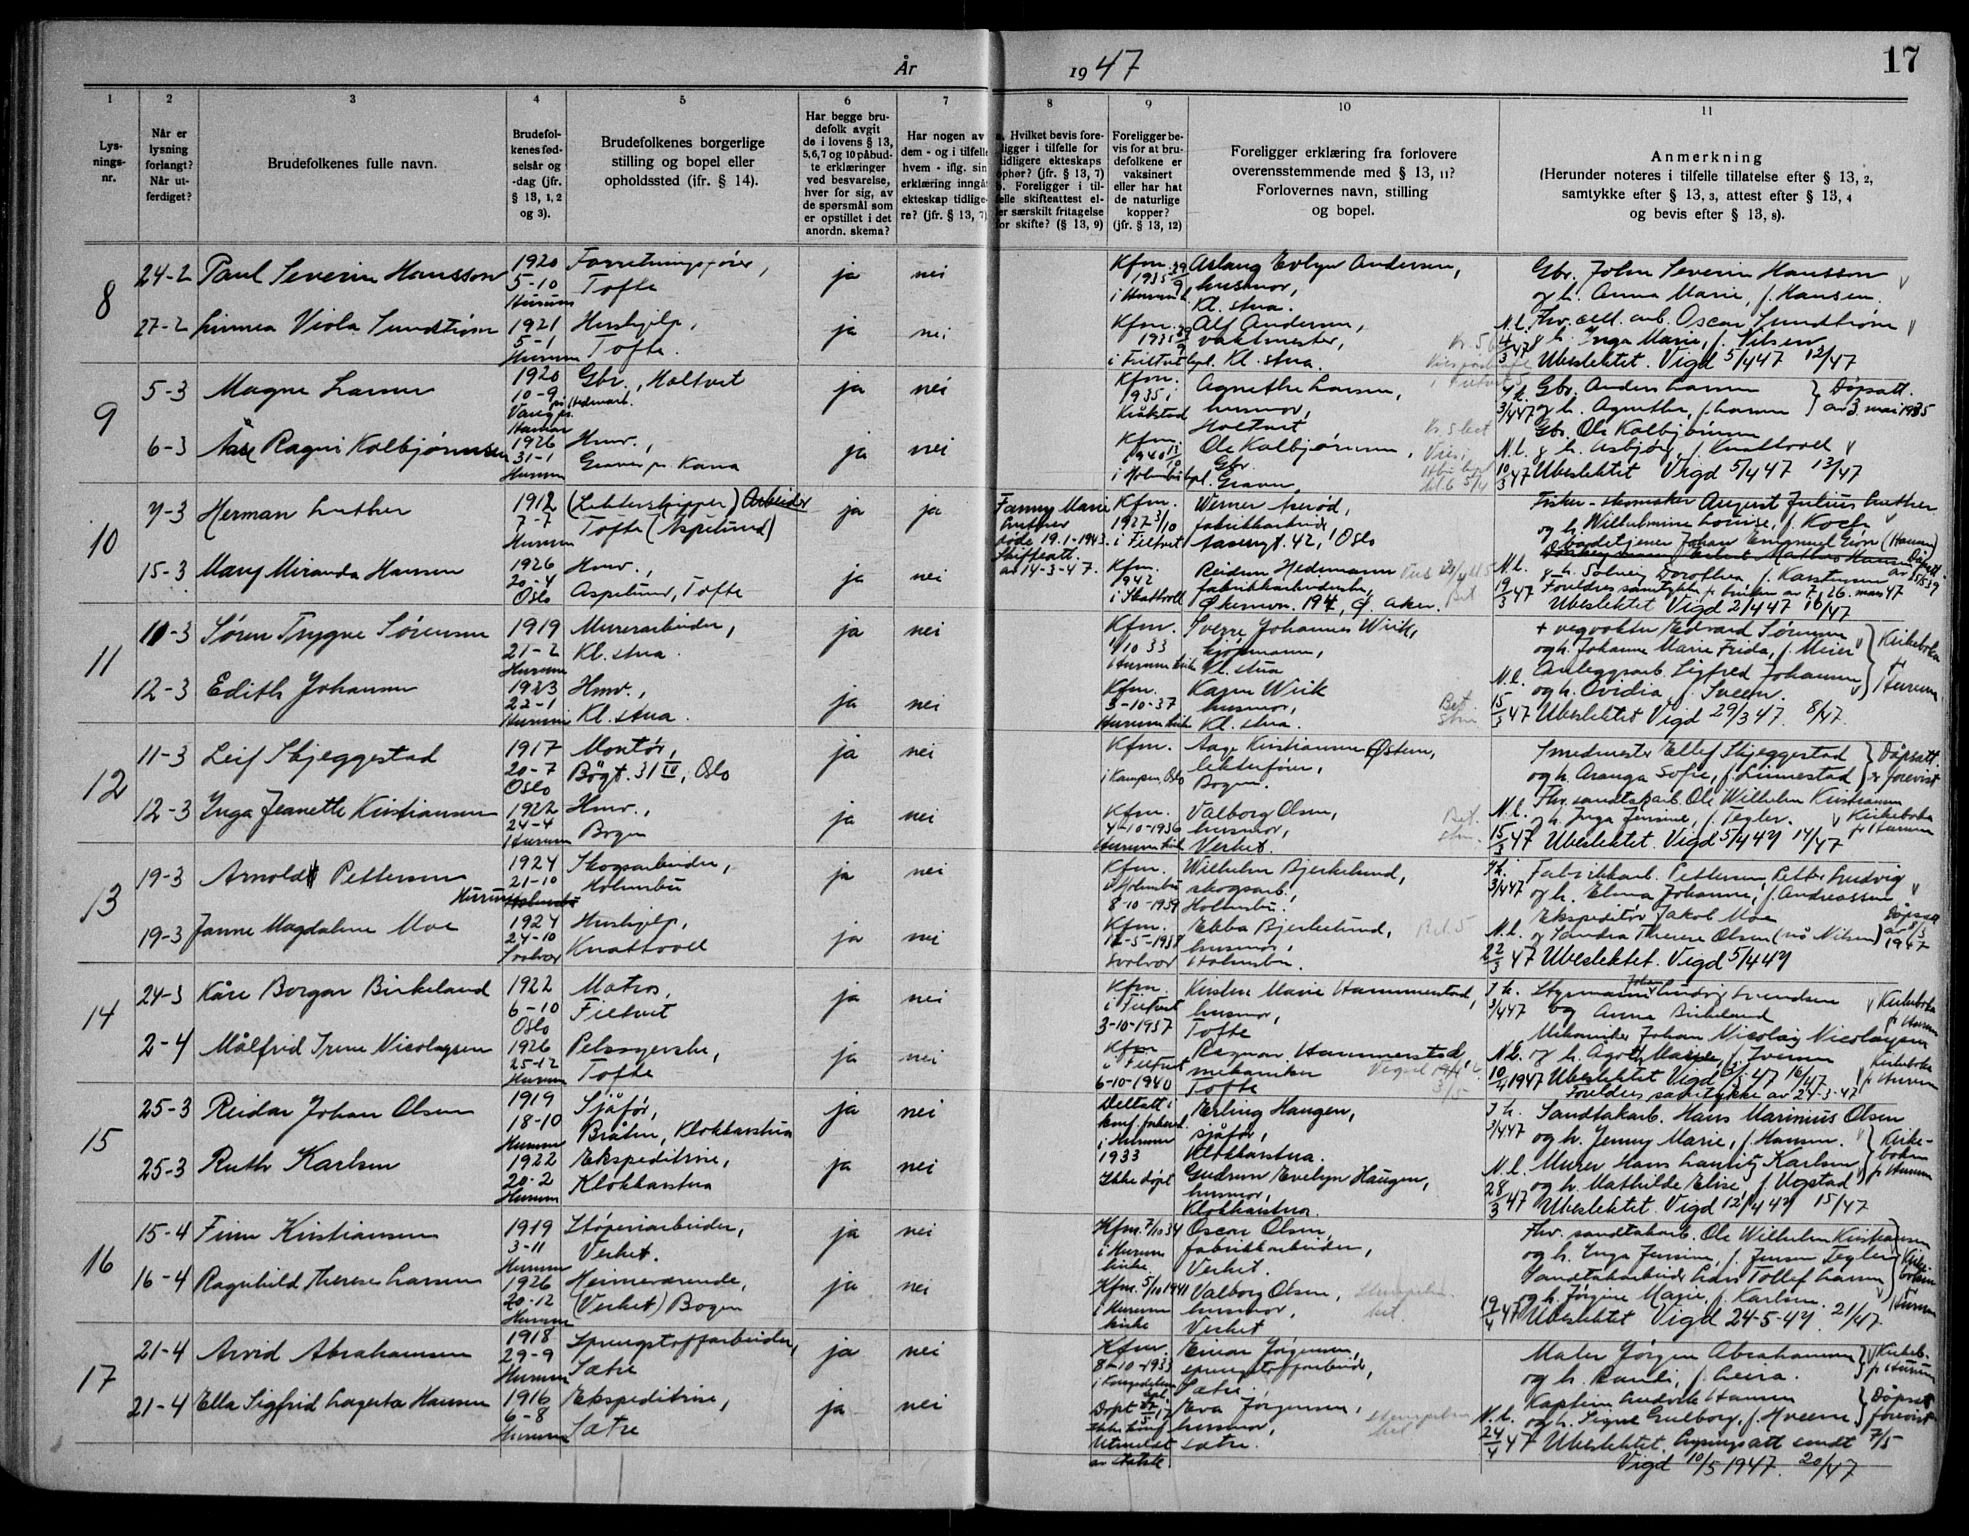 År 1947
17
1
Lys-
nings-
nr.
2
Når er
lysning
forlangt?
Når ut-
ferdiget?
3
Brudefolkenes fulle navn.
4
Brudefol-
kenes fød-
selsår og
-dag (jfr.
§ 13, 1, 2
og 3).
5
Brudefolkenes borgerlige
stilling og bopel eller
opholdssted (ifr. § 14).
6
Har begge bru-
defolk avgit
de i lovens § 13,
5, 6, 7 og 10 påbud-
te erklæringer
ved besvarelse,
hver for sig, av
de spørsmål som
er opstillet i det
anordn. skema?
7
Har nogen av
dem - og i tilfelle
hvem - iflg. sin
erklæring inngåt
ekteskap tidlige-
re? (jfr. § 13, 7)
8
a. Hvilket bevis fore-
ligger i tilfelle for
tidligere ekteskaps
ophør? (jfr. § 13, 7)
b. Foreligger i til-
felle skifteattest el-
ler særskilt fritagelse
for skifte? (§ 13, 9)
9
Foreligger be-
vis for at bru-
defolkene er
vaksinert
eller har hat
de naturlige
kopper?
(jfr. § 13, 12)
10
Foreligger erklæring fra forlovere
overensstemmende med § 13, 11?
Forlovernes navn, stilling
og bopel.
11
Anmerkning
(Herunder noteres i tilfelle tillatelse efter § 13, 2,
samtykke efter § 13, 3, attest efter § 13, 4
og bevis efter § 13, 8).
8
24-2 Paul Severin Hansson
1920
5-10
Hurum
Forretningsfører,
Tofte
ja nei
Kfm.
1935
i Hurum k.
Aslaug Evlyn Andersen,
husmor,
Kl. stua.
Gbr. John Severin Hansson
og h. Anna Marie, f. Hansen.
27-2 Linnea Viola Sundtrøm
1921
5-1
Hurum
Hushjelp,
Tofte.
ja nei
Kfm.
1935
i Filtvet kpl.
Alf Andersen,
vaktmester,
Kl. stua.
N.l. Fhv. cell. arb. Oscar Sundtrøm
og h. Inga Marie, f. Nilsen
Ubeslektet. Vigd 5/4 47 12/47
9
5-3 Magne Larsen
1920
10-9
Vang pr.
Hamar
Gbr., Holtvet
på Hedemark.
ja nei
Kfm.
1935 i
Kråkstad
Agnethe Larsen,
husmor,
Holtvet
Gbr. Anders Larsen
og h. Agnethe, f. Larsen
Dåpsatt.
av 3. mai 1935
6-3 Åse Ragni Kolbjørnsen
1926
31-1
Hurum
Hmv.,
Graven pr. Kana
ja nei
Kfm.
1940
i Holmsbu kpl.
Ole Kolbjørnsen,
Gbr.
Graven
Gbr. Ole Kolbjørnsen
N.l. og h. Asbjørg, f. Knattvoll
10/3 47 Ubeslektet Vigd 5/4 47 13/47
10
7-3 Herman Luther
1912
7-7
Hurum
(Lekterskipper) Arbeider
Tofte (Aspelund)
ja ja
Fanny Marie
Luther
døde 19.1-1943.
Skifteatt.
av 14-3-47.
Kfm.
1927 2/10
i Filtvet
Werner Åserød,
fabrikkarbeider
Aasengt. 42, Oslo
Fisker - skomaker August Julius Luther
og h. Wilhelmine Lovise, f. Koch
15-3 Mary Miranda Hansen
1926
20-4
Oslo
Hmv.,
Aspelund, Tofte
ja nei
Kfm.
1942
i Skattvoll
Reidun Hedemann
fabrikkarbeiderske,
Økernvn. 194, Ø. Aker.
N.l. og h. Solveig Dorothea, f. Karstensen
19/3 47 Foreldres samtykke pr bruden av 7/26. mars 47
Ubeslektet Vigd 2/4 47 10/47
11
10-3 Søren Trygve Sørensen
1919
21-2
Hurum
Murerarbeider,
Kl. stua.
ja nei
Kfm.
1/10 33
Hurum kirke
Sverre Johannes Wiik,
kjøpmann,
Kl. stua
+ vegvokter Edvard Sørensen
og h. Johanne Marie Frida, f. Meier
Kirkeboka
f. Hurum
12-3 Edith Johansen
1923
22-1
Hurum
Hmv.,
Kl. stua.
ja nei
Kfm.
3-10-37
Hurum kirke
Karen Wiik
husmor,
Kl. stua.
N.l. Anleggsarb. Sigfred Johansen
og h. Ovidia, f. Sveen.
15/3 47 Ubeslektet Vigd 29/3 47. 8/47.
12
11-3 Leif Skjeggestad
1917
20-7
Oslo
Montør,
Bøgt. 31 IV, Oslo
ja nei
Kfm.
i Kampen, Oslo
Aage Kristiansen Østern,
lekterfører,
Bogen.
Smedmester Ellef Skjeggestad
og h. Aranga Sofie, f. Linnestad
Dåpsatt.
er forevist
12-3 Inga Jeanette Kristiansen
1922
24-4
Hurum
Hmv.,
Bogen
ja nei
Kfm.
4-10-1936
Hurum kirke
Valborg Olsen,
husmor,
Verket.
N.l. Fhv. sandtakarb. Ole Wilhelm Kristiansen
og h. Inga Jensine, f. Tegler.
Kirkeboka
f. Hurum
15/3 47 Ubeslektet. Vigd 5/4 47 14/47
13
19-3 Arnold Pettersen
1924
21-10
Hurum
Skogsarbeider,
Holmsbu
ja nei
Kfm.
i Holmsbu
8-10-1939
Wilhelm Bjerkelund,
skogsarb.
Holmsbu.
3/4 47 Fabrikkarb. Pettersen, Petter Ludvig
og h. Elma Johanne, f. Andreassen
19-3 Janne Magdalene Moe
1924
24-10
Svolvær
Hushjelp,
Knattvoll
ja nei
Kfm.
12-5-1938
Svolvær
Ebba Bjerkelund,
husmor,
Holmsbu.
Ekspeditør Jakob Moe
N.l. og Sandra Therese Olsen (nå Nilsen)
Dåpsatt
av 8/3
1947
22/3 47 Ubeslektet. Vigd 5/4 47
14
24-3 Kåre Borgar Birkeland
1922
6-10
Oslo
Matros,
Filtvet
ja nei
Kfm.
i Filtvet
3-10-1937
Kirsten Marie Hammerstad,
husmor,
Tofte
3/4 47 Styrmann Johan Ludvig Svendsen
og Anna Birkeland
Kirkeboka
f. Hurum
2-4 Målfrid Irene Nicolaysen
1926
25-12
Hurum
Pelssyerske,
Tofte
ja nei
Kfm.
i Filtvet
6-10-1940
Ragnar Hammerstad,
mekaniker
Tofte
Mekaniker Johan Nicolay Nicolaysen
N.l. og h. Agot Marie, f. Iversen
10/4 1947 Ubeslektet Vigd 3/5 47 16/47
Kirkeboka
f. Hurum
Foreldres samtykke av 24-3-47
15
25-3 Reidar Johan Olsen
1919
18-10
Hurum
Sjåfør,
Bråten, Klokkarstua
ja nei
Deltatt i
konf. forbered.
i Hurum
1933
Erling Haugen,
sjåfør,
Klokkarstua.
3/4 47 Sandtakarb. Hans Marinius Olsen
og h. Jenny Marie, f. Hansen.
Kirke-
boken
f. Hurum
25-3 Ruth Karlsen
1922
20-2
Hurum
Ekspeditrise,
Klokkarstua
ja nei
Ikke døpt
Gudrun Evelyn Haugen,
husmor,
Klokkarstua.
N.l. Murer Hans Lauritz Karlsen,
og h. Mathilde Elise, f. Ugstad
28/3 47 Ubeslektet. Vigd 12/4 47 15/47
16
15-4 Finn Kristiansen
1919
3-11
Hurum
Støperiarbeider,
Verket.
ja nei
Kfm. 7/10 34
i Hurum
kirke
Oscar Olsen,
fabrikkarbeider,
Verket.
Fhv. sandtakarb. Ole Wilhelm Kristiansen
og h. Inga Jensine, f. Jensen Tegler
Kirke-
boken
f. Hurum
16-4 Ragnhild Therese Larsen
1926
20-12
Hurum
Heimeværende,
(Verket) Bogen
ja nei
Kfm. 5/10 1941
i Hurum
kirke
Valborg Olsen,
husmor,
Verket
Sandtakarbeider Lars Tollef Larsen
og h. Jørgine Marie, f. Karlsen.
19/4 47 Ubeslektet Vigd 24-5-47. 21/47.
17
21-4 Arvid Abrahamsen
1918
29-9
Hurum
Sprengstoffarbeider,
Sætre
ja nei
Kfm.
8-10-1933
i Kongsdelene
kpl.
Einar Jørgensen,
sprengstoffarbeid.,
Sætre.
Maler Jørgen Abrahamsen
og h. Randi, f. Leira.
Kirkeb.
f. Hurum
21-4 Ella Sigfrid Lagerta Hansen
1916
6-8
Hurum
Ekspeditrise,
Sætre
ja nei
Døpt
Ikke konf.
Utmeldt
av statsk.
Eva Jørgensen,
husmor,
Sætre.
Kaptein Ludvik Hansen
N.l. og h. Signe Gulborg, f. Hveem
Dåpsatt
forevist
24/4 47 Ubeslektet. Lysningsatt sendt 7/5
Vigd 10/5 1947. 20/47